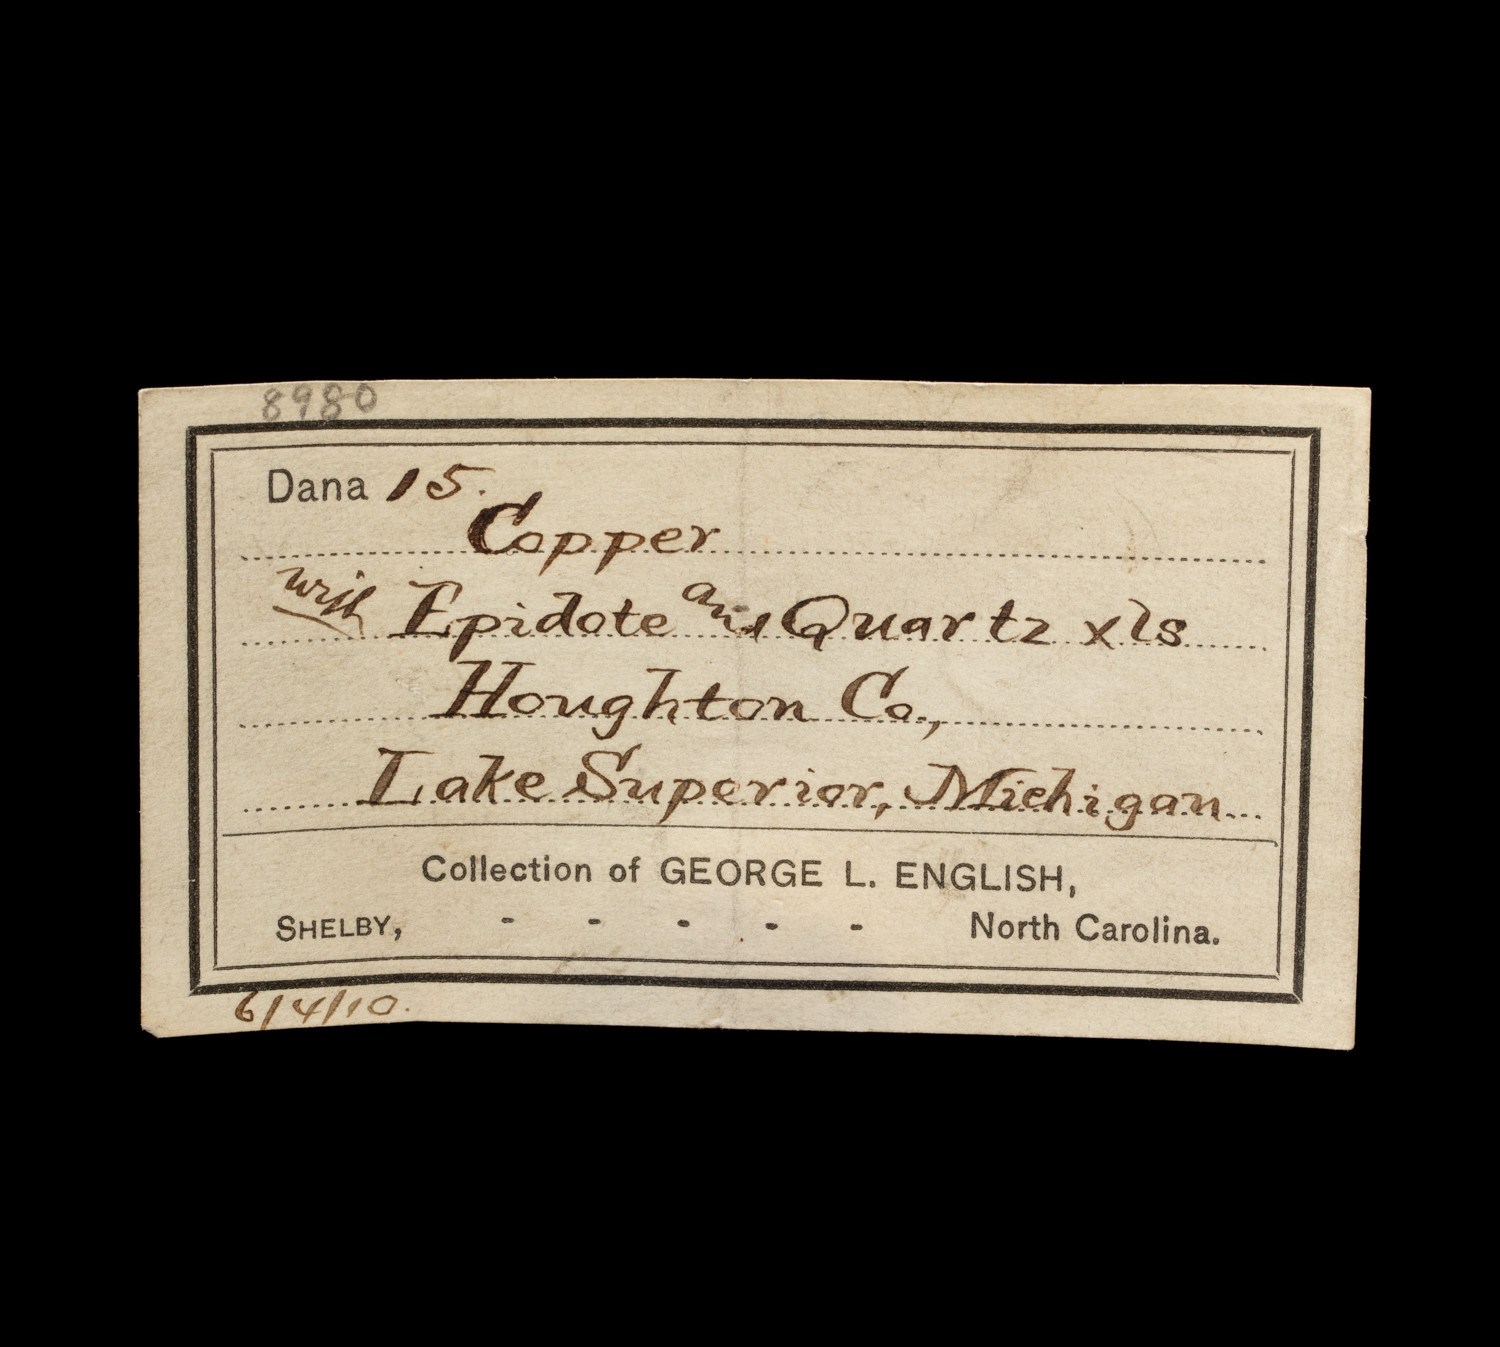 8980
Dana 15.
Copper
with Epidote and Quartz xls
Houghton Co.,
Lake Superior, Michigan
Collection of GEORGE L. ENGLISH,
SHELBY, - - - - - North Carolina.
6/4/10.